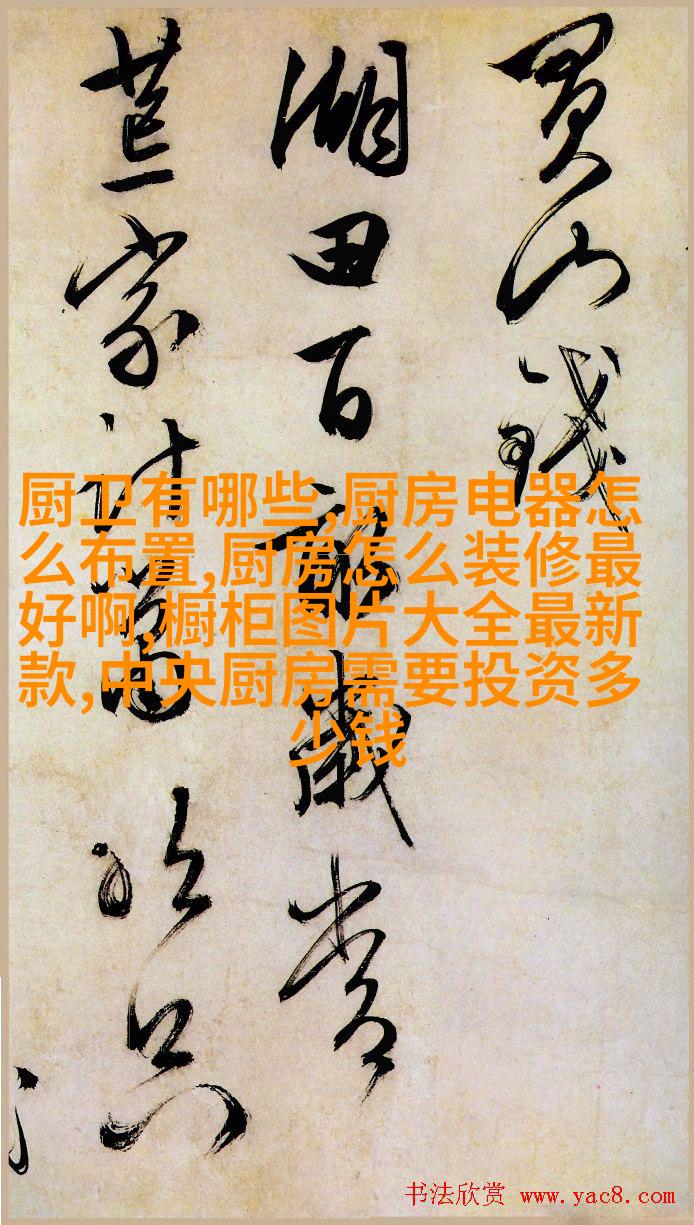 買山錢
湖田百畝歲常
荒家計蕭
厨卫有哪些,厨房电器怎
么布置,厨房怎么装修最
好啊,橱柜图片大全最新
款,中央厨房需要投资多
少钱
书法欣赏 www.yac8.com